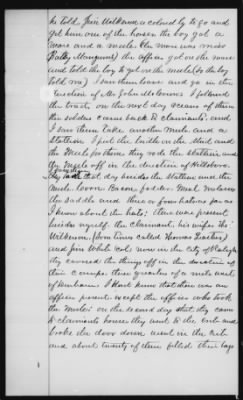 he told Jim Wilkerson a colored by to go and
get him one of the horses the boy got a
mare and a mule (the mare was miss
Mangums) the officer got on the mare
and told the boy to get on the mule (so the boy
told me) I saw them leave and go in the
direction of Mr John McCowns I followed
the tracks, on the next day several of them
the soldiers came back to claimants and
I saw them take another Mule and a
Stallion I put the bridle on the Mule and
the Mule for them they rode the Stallion and
they went off in the direction of Hillsboro.
They took that day besides the Stallion and the
Mule Corn Bacon fodder Meal molasses
the saddle and three or four halters far as
I know about the hats: there was present
besides myself. the Claimant, his wife Th
Wilkerson, (sometimes called Thomas )
and Jim White Col now in the City of Raleigh
they carried the things off in the direction of
their camps three quarters of a mile west
of Durham I dont know that there was an
officer present except the officer who took
the Mule: on the second day that they came
to claimants house they went to the crib and
broke the door down went in the crib
and about twenty of them filled their bags